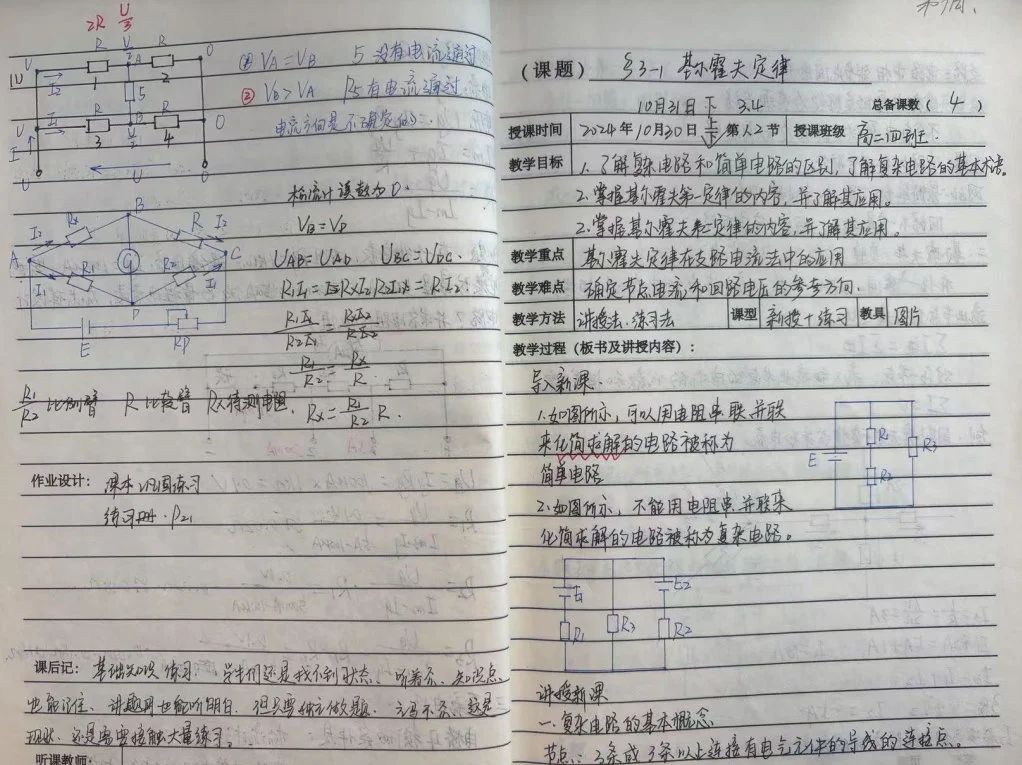 2R U/3
U R V/3 A R 0
1V I₂ 1 2
5
U I₁ R B R 0
I 3 4
U 0
① VA=VB 5没有电流通过
② VB>VA R5有电流通过.
电流方向是不确定的
检流计读数为0.
VB=VD
UAB=UAD. UBC=UDC.
R1I1=I2RX R2I1=RI2
R1I1/R2I1=RXI2/RI2
R1/R2=RX/R.
RX=R1/R2 R.
B
I2 RX R I2
A G C
I1 R1 R2 I1
D
E RP
R1/R2 比例臂 R比较臂 RX待测电阻.
作业设计: 课本巩固练习
练习册.P21
课后记: 基础知识练习. 学生们还是找不到状态. 听着不、知识点
也能记住、讲题时也能听明白.但只要独立做题.
现状.还是需要接触大量练习。
听课教师:
(课题) §3-1 基尔霍夫定律
10月31日 下 3.4 总备课数(4)
授课时间 2024年10月30日 第1、2节 授课班级 高二四班.
教学目标 1.了解复杂电路和简单电路的区别,了解复杂电路的基本术语.
2.掌握基尔霍夫第一定律的内容,并了解其应用。
2.掌握基尔霍夫第二定律的内容,并了解其应用。
教学重点 基尔霍夫定律在支路电流法中的应用
教学难点 确定节点电流和回路电压的参考方向.
教学方法 讲授法.练习法 课型 新授+练习 教具 图片
教学过程(板书及讲授内容):
导入新课.
1.如图所示,可以用电阻串联.并联
来化简求解的电路被称为
简单电路
E R1 R2 R3
2.如图所示,不能用电阻串并联来
化简求解的电路被称为复杂电路。
E1 E2
R1 R3 R2
讲授新课
一.复杂电路的基本概念.
节点:3条或3条以上连接有电气元件的导线的连接点。